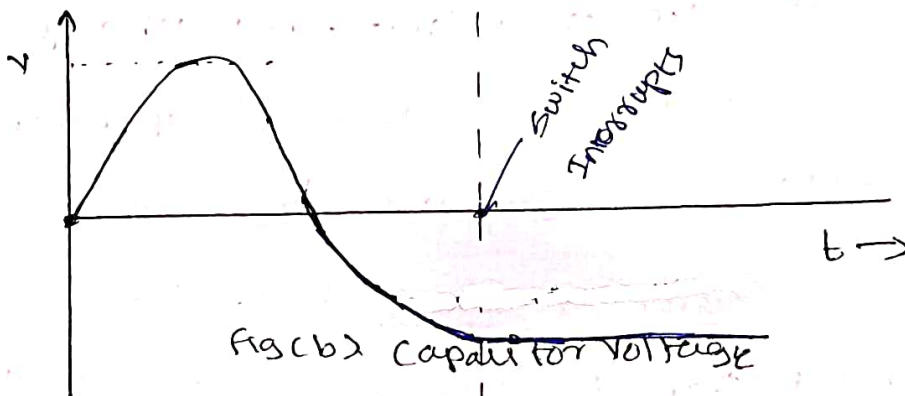 v
Switch
Interrupts
t →
Fig (b) Capacitor Voltage